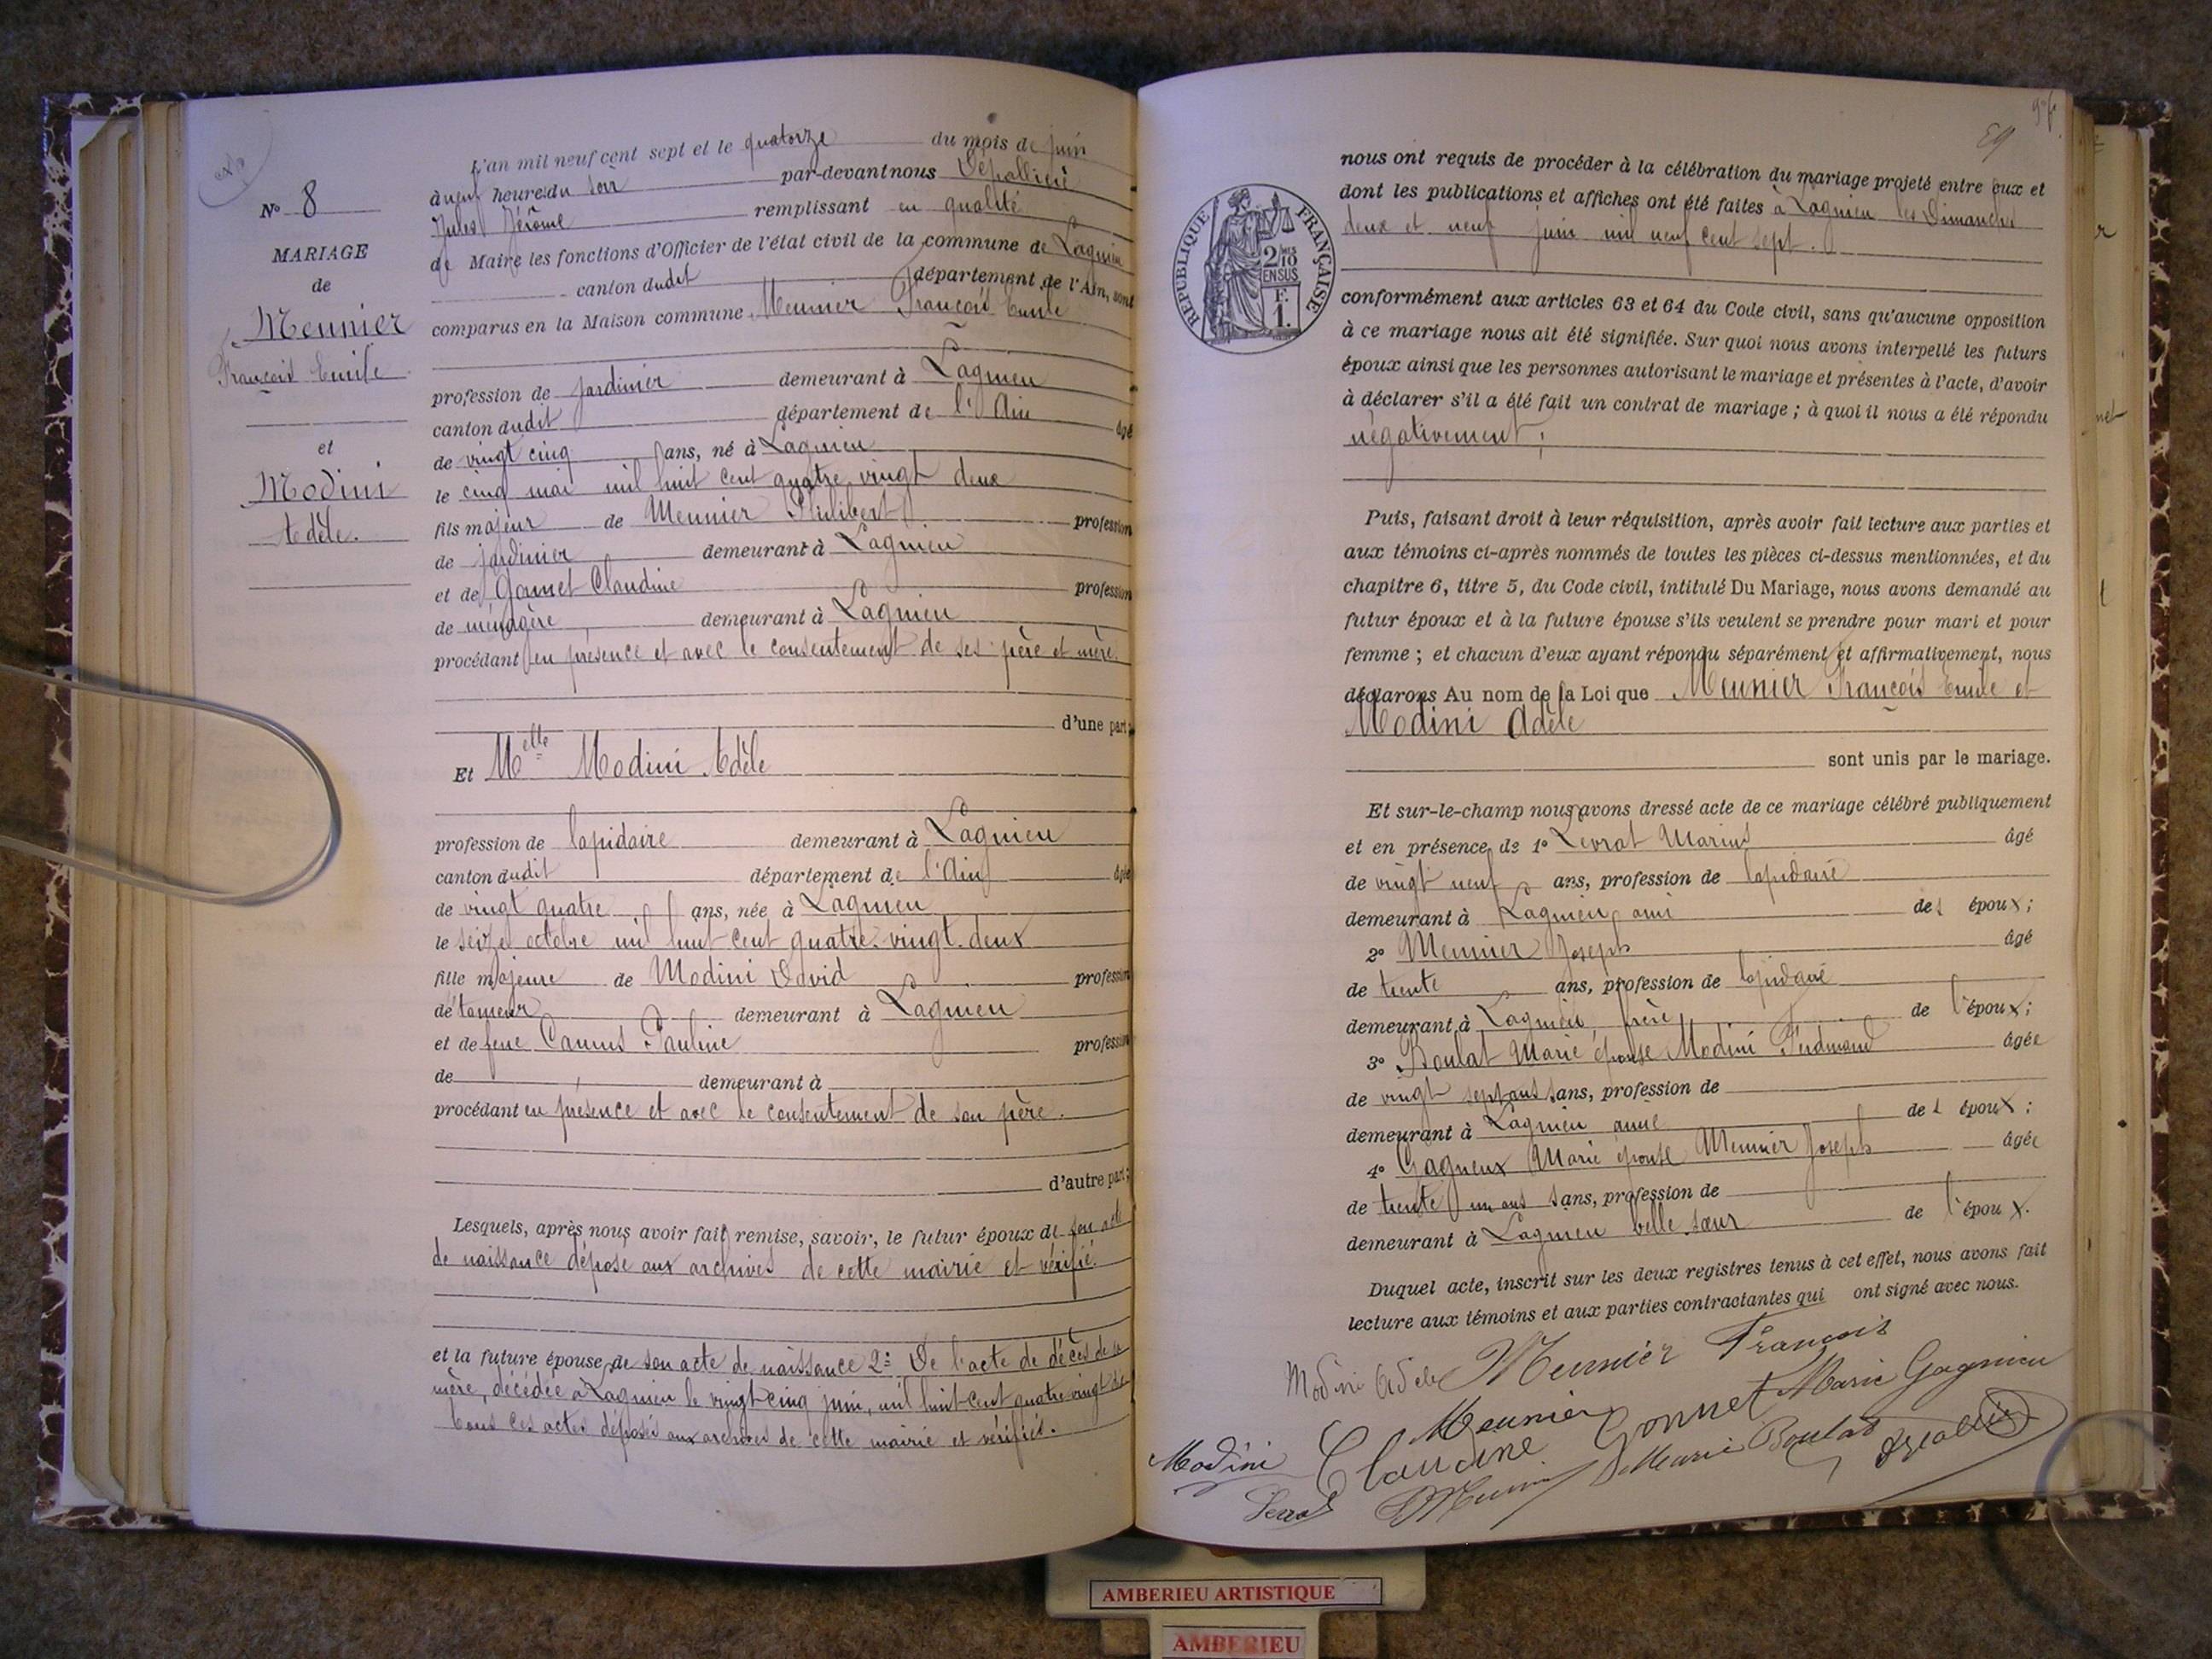 No 8
MARIAGE
de
Meunier
François Emile
et
Modini
Adèle.
L'an mil neuf cent sept et le quatorze du mois de juin
à neuf heures du soir par-devant nous
Jules Jérôme remplissant en qualité
de Maire les fonctions d'Officier de l'état civil de la commune de Lagnieu
canton dudit département de l'Ain, sont
comparus en la Maison commune Meunier François Emile
profession de jardinier demeurant à Lagnieu
canton dudit département de l'Ain âgé
de vingt cinq ans, né à Lagnieu
le cinq mai mil huit cent quatre vingt deux
fils majeur de Meunier Philibert profession
de jardinier demeurant à Lagnieu
et de Gonnet Claudine profession
de ménagère demeurant à Lagnieu
procédant en présence et avec le consentement de ses père et mère.
d'une part;
Et Melle Modini Adèle
profession de lapidaire demeurant à Lagnieu
canton dudit département de l'Ain âgée
de vingt quatre ans, née à Lagnieu
le seize octobre mil huit cent quatre-vingt-deux
fille majeure de Modini David profession
d'étameur demeurant à Lagnieu
et de feue Camus Pauline profession
de demeurant à
procédant en présence et avec le consentement de son père.
d'autre part;
Lesquels, après nous avoir fait remise, savoir, le futur époux de son acte
de naissance déposé aux archives de cette mairie et vérifié.
et la future épouse de son acte de naissance 2° De l'acte de décès de sa
mère, décédée à Lagnieu le vingt-cinq juin, mil huit-cent quatre vingt
tous ces actes déposés aux archives de cette mairie et vérifiés.
RÉPUBLIQUE FRANÇAISE
2/10 EN SUS
F. 1.
nous ont requis de procéder à la célébration du mariage projeté entre eux et
dont les publications et affiches ont été faites à Lagnieu les Dimanches
deux et neuf juin mil neuf cent sept.
conformément aux articles 63 et 64 du Code civil, sans qu'aucune opposition
à ce mariage nous ait été signifiée. Sur quoi nous avons interpellé les futurs
époux ainsi que les personnes autorisant le mariage et présentes à l'acte, d'avoir
à déclarer s'il a été fait un contrat de mariage ; à quoi il nous a été répondu
négativement;
Puis, faisant droit à leur réquisition, après avoir fait lecture aux parties et
aux témoins ci-après nommés de toutes les pièces ci-dessus mentionnées, et du
chapitre 6, titre 5, du Code civil, intitulé Du Mariage, nous avons demandé au
futur époux et à la future épouse s'ils veulent se prendre pour mari et pour
femme ; et chacun d'eux ayant répondu séparément et affirmativement, nous
déclarons Au nom de la Loi que Meunier François Emile et
Modini Adèle
sont unis par le mariage.
Et sur-le-champ nous avons dressé acte de ce mariage célébré publiquement
et en présence de 1° Levrat Marius âgé
de vingt neuf ans, profession de lapidaire
demeurant à Lagnieu, ami des époux;
2° Meunier Joseph âgé
de trente ans, profession de lapidaire
demeurant à Lagnieu, frère de l'époux;
3° Boulat Marie épouse Modini Ferdinand âgée
de vingt sept ans sans, profession de
demeurant à Lagnieu amie des époux;
4° Gagneux Marie épouse Meunier Joseph âgée
de trente un ans sans, profession de
demeurant à Lagnieu belle-sœur de l'époux.
Duquel acte, inscrit sur les deux registres tenus à cet effet, nous avons fait
lecture aux témoins et aux parties contractantes qui ont signé avec nous.
Modini Adele Meunier François
Meunier Gonnet Marie Gagnieu
Modini Claudine Marie Boulat
Levrat Meunier
AMBERIEU ARTISTIQUE
AMBERIEU